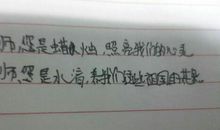 师,您是蜡烛,照亮我们的心灵
师,您是水滴,养我们这些祖国的花朵